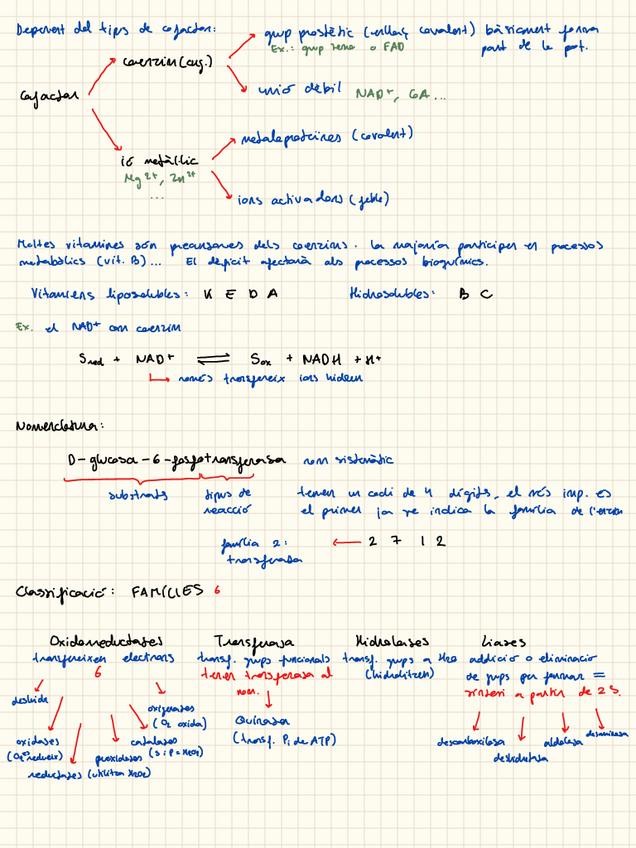 Depenent del tipus de cofactor:
grup prostètic (enllaç covalent) bàsicament forma
part de la prot.
Ex.: grup hemo o FAD
coenzim (org.)
unió dèbil NAD+, CoA...
Cofactor
metaloproteïnes (covalent)
ió metàl·lic
Mg2+, Zn2+
...
ions activadors (feble)
Moltes vitamines són precursores dels coenzims. La majoria participen en processos
metabòlics (vit. B)... El dèficit afectarà als processos bioquímics.
Vitamines liposolubles: K E D A Hidrosolubles: B C
Ex. el NAD+ com coenzim
Sred + NAD+ ⇌ Sox + NADH + H+
només transfereix ions hidrur
Nomenclatura:
D-glucosa-6-fosfotransferasa nom sistemàtic
substrats tipus de reacció
tenen un codi de 4 dígits, el més imp. es
el primer ja ve indica la família de l'enzim
família 2: transferasa ← 2 7 1 2
Classificació: FAMÍLIES 6
Oxidoreductases Transferasa Hidrolases Liases
transfereixen electrons
6
transf. grups funcionals
tenen transferasa al
nom.
transf. grups a H2O
(hidrolitzen)
addició o eliminació
de grups per formar =
síntesi a partir de 2 S.
deshidr
oxidases
(O2 redueix)
reductases (utilitzen H2O2)
peroxidases
catalases
(S i P = H2O2)
oxigenases
(O2 oxida)
Quinasa
(transf. Pi de ATP)
descarboxilasa
deshidratasa
aldolasa
desaminasa